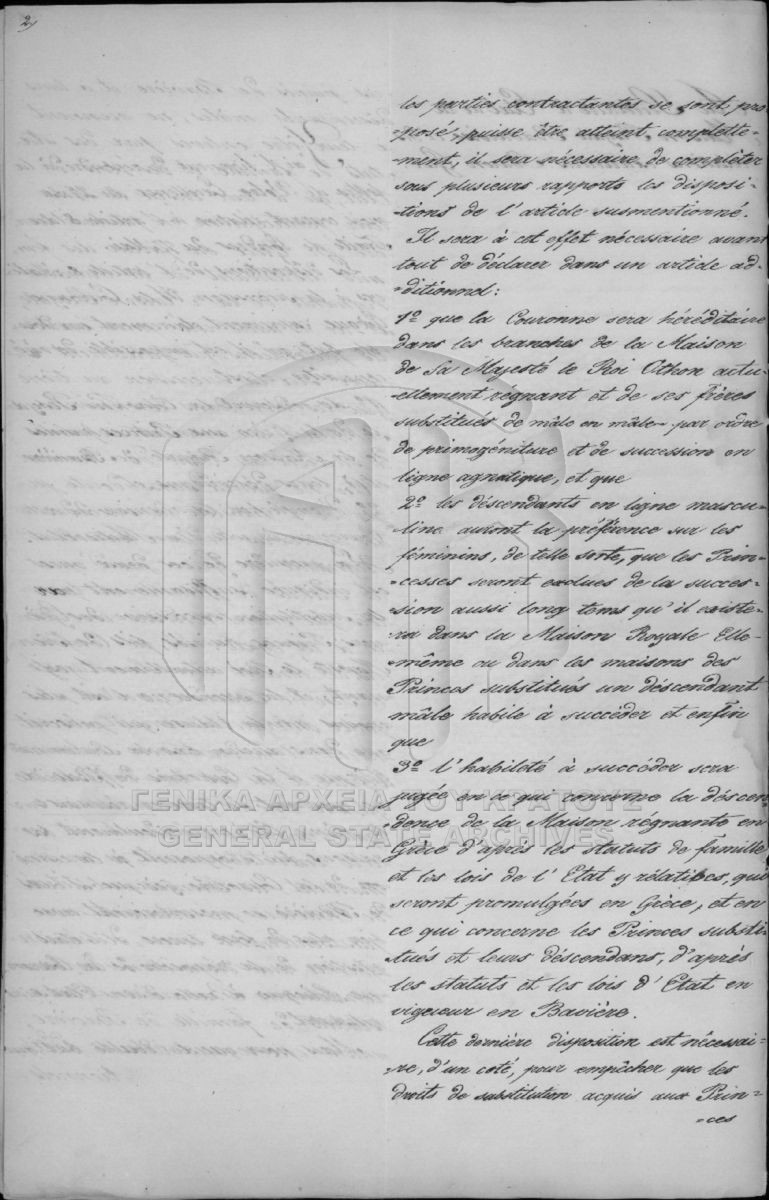 2)
les parties contractantes se sont pro-
-posé, puisse être atteint complette-
-ment, il sera nécessaire de compléter
sous plusieurs rapports les disposi-
-tions de l'article susmentionné.
Il sera à cet effet nécessaire avant
tout de déclarer dans un article ad-
-ditionnel:
1º que la Couronne sera héréditaire
dans les branches de la Maison
de Sa Majesté le Roi Othon actu-
-ellement régnant et de ses frères
substitués de mâle en mâle par ordre
de primogéniture et de succession en
ligne agnatique, et que
2º les déscendants en ligne mascu-
-line auront la préférence sur les
féminins, de telle sorte, que les Prin-
-cesses seront exclues de la succes-
-sion aussi long tems qu'il existe-
-ra dans la Maison Royale Elle-
-même ou dans les maisons des
Princes substitués un déscendant
mâle habile à succéder et enfin
que
3º l'habileté à succéder sera
jugée en ce qui concerne la déscen-
dence de la Maison régnante en
Grèce d'après les statuts de famille
et les lois de l'Etat y rélatives, qui
seront promulgées en Grèce, et en
ce qui concerne les Princes substi-
-tués et leurs déscendans, d'après
les statuts et les lois d'Etat en
vigueur en Bavière.
Cette dernière disposition est nécessai-
-re, d'un coté, pour empêcher que les
droits de substitution acquis aux Prin-
-ces
ΓΕΝΙΚΑ ΑΡΧΕΙΑ ΤΟΥ ΚΡΑΤΟΥΣ
GENERAL STATE ARCHIVES